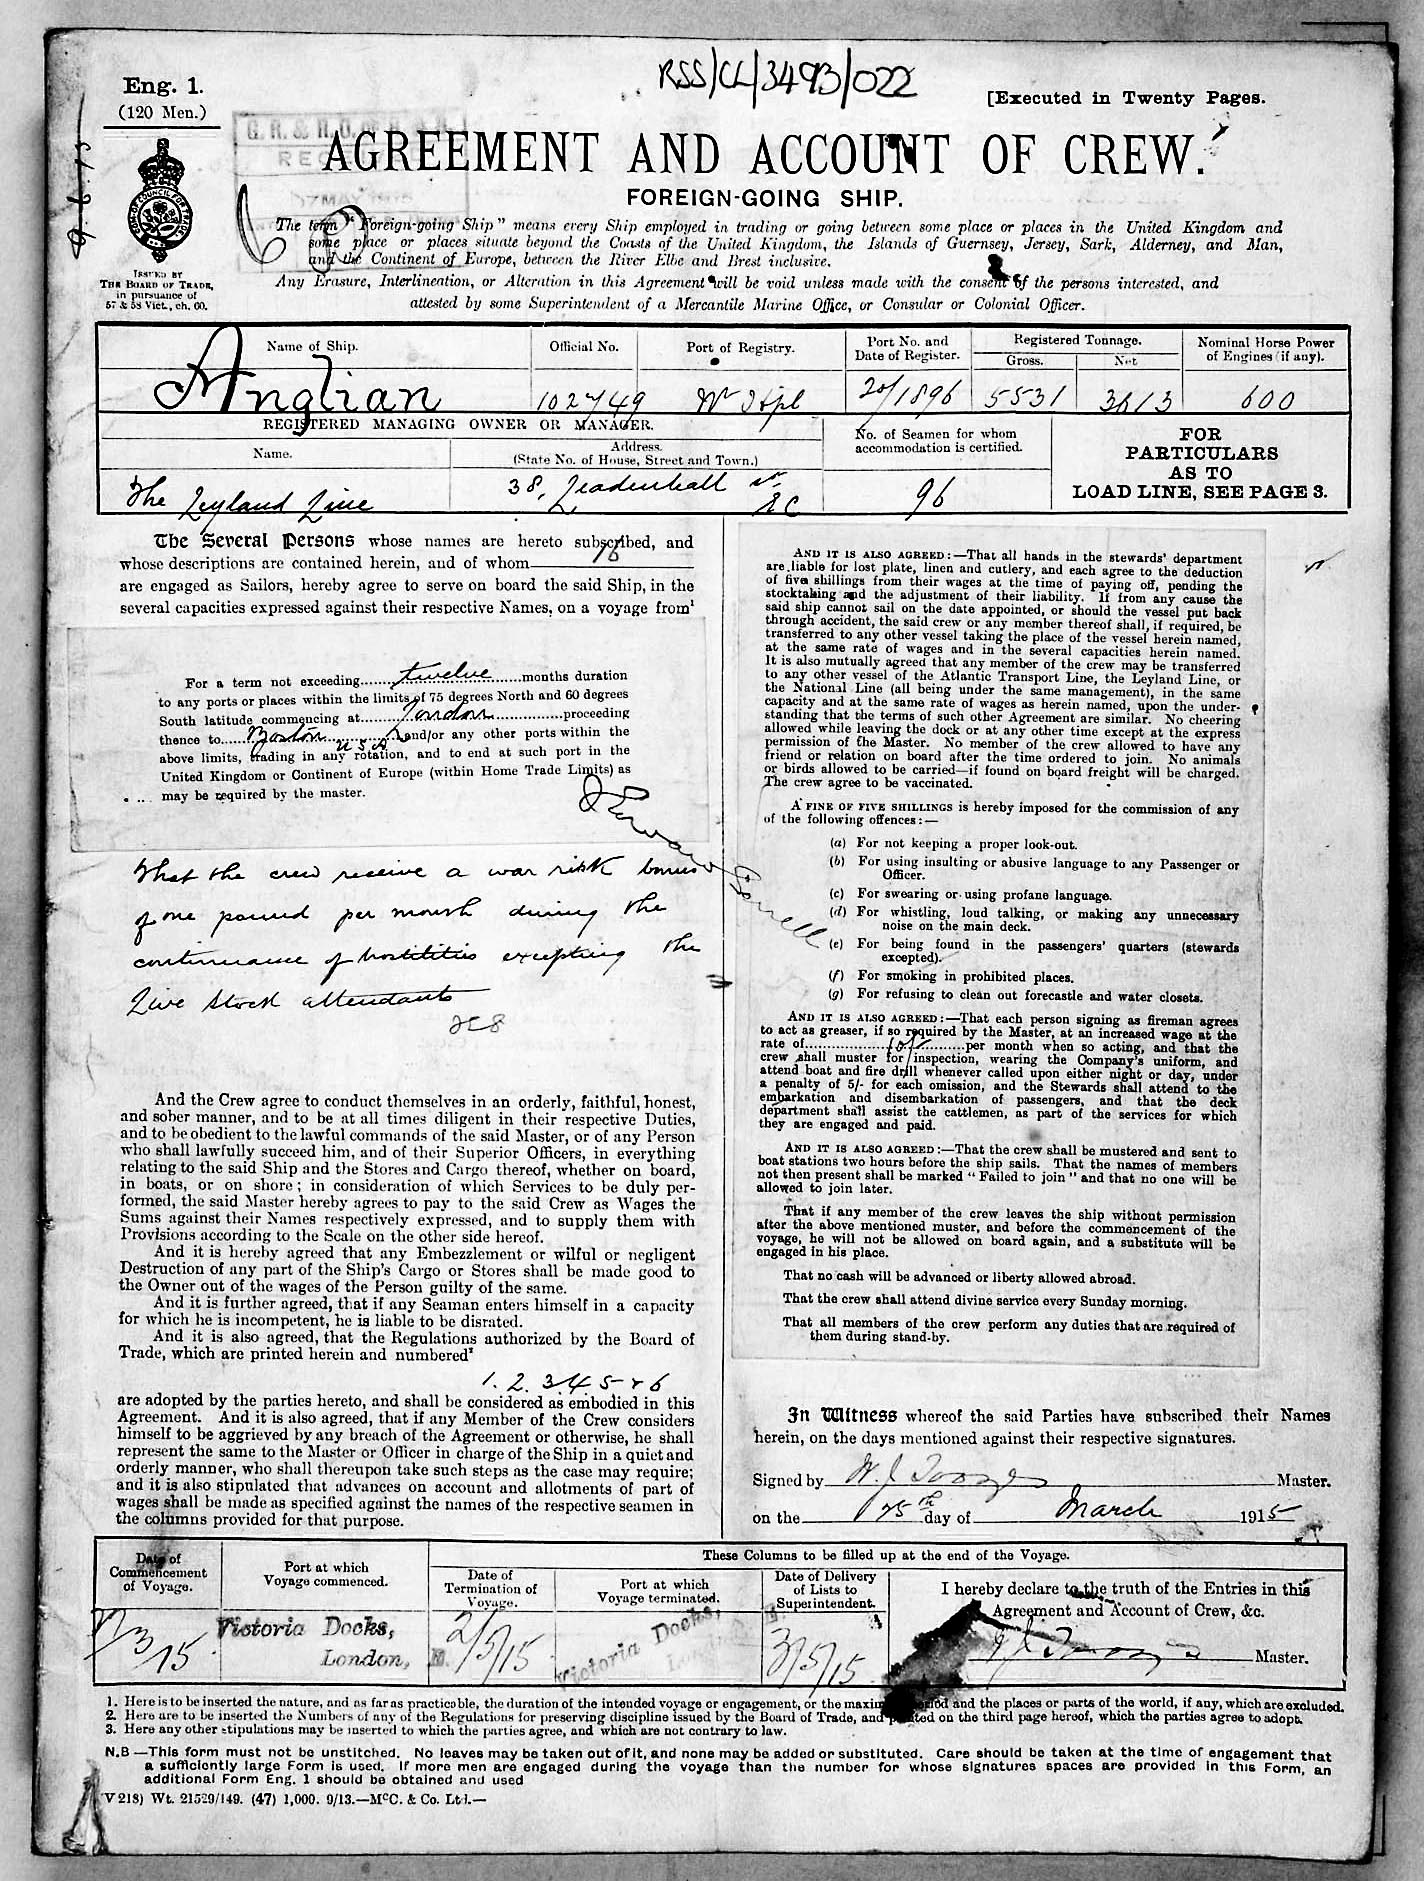 RSS/CL/3493/022
Eng. 1.
(120 Men.)
[Executed in Twenty Pages.
9.6.15
AGREEMENT AND ACCOUNT OF CREW.
FOREIGN-GOING SHIP.
ISSUED BY
THE BOARD OF TRADE,
in pursuance of
57 & 58 Vict., ch. 60.
The term "Foreign-going Ship" means every Ship employed in trading or going between some place or places in the United Kingdom and
some place or places situate beyond the Coasts of the United Kingdom, the Islands of Guernsey, Jersey, Sark, Alderney, and Man,
and the Continent of Europe, between the River Elbe and Brest inclusive.
Any Erasure, Interlineation, or Alteration in this Agreement will be void unless made with the consent of the persons interested, and
attested by some Superintendent of a Mercantile Marine Office, or Consular or Colonial Officer.
Name of Ship. Official No. Port of Registry. Port No. and Date of Register. Registered Tonnage. Gross. Net Nominal Horse Power of Engines (if any).
Anglian 102749 W Htpl 20/1896 5531 3613 600
REGISTERED MANAGING OWNER OR MANAGER.
Name. Address. (State No. of House, Street and Town.) No. of Seamen for whom accommodation is certified.
FOR PARTICULARS AS TO LOAD LINE, SEE PAGE 3.
The Leyland Line 38, Leadenhall St. EC 96
The Several Persons whose names are hereto subscribed, and
whose descriptions are contained herein, and of whom 76
are engaged as Sailors, hereby agree to serve on board the said Ship, in the
several capacities expressed against their respective Names, on a voyage from¹
For a term not exceeding twelve months duration
to any ports or places within the limits of 75 degrees North and 60 degrees
South latitude commencing at London proceeding
thence to Boston U S A and/or any other ports within the
above limits, trading in any rotation, and to end at such port in the
United Kingdom or Continent of Europe (within Home Trade Limits) as
may be required by the master.
That the crew receive a war risk bonus
of one pound per month during the
continuance of hostilities excepting the
Live Stock attendants
And the Crew agree to conduct themselves in an orderly, faithful, honest,
and sober manner, and to be at all times diligent in their respective Duties,
and to be obedient to the lawful commands of the said Master, or of any Person
who shall lawfully succeed him, and of their Superior Officers, in everything
relating to the said Ship and the Stores and Cargo thereof, whether on board,
in boats, or on shore; in consideration of which Services to be duly per-
formed, the said Master hereby agrees to pay to the said Crew as Wages the
Sums against their Names respectively expressed, and to supply them with
Provisions according to the Scale on the other side hereof.
And it is hereby agreed that any Embezzlement or wilful or negligent
Destruction of any part of the Ship's Cargo or Stores shall be made good to
the Owner out of the wages of the Person guilty of the same.
And it is further agreed, that if any Seaman enters himself in a capacity
for which he is incompetent, he is liable to be disrated.
And it is also agreed, that the Regulations authorized by the Board of
Trade, which are printed herein and numbered²
1. 2. 3. 4. 5 & 6
are adopted by the parties hereto, and shall be considered as embodied in this
Agreement. And it is also agreed, that if any Member of the Crew considers
himself to be aggrieved by any breach of the Agreement or otherwise, he shall
represent the same to the Master or Officer in charge of the Ship in a quiet and
orderly manner, who shall thereupon take such steps as the case may require;
and it is also stipulated that advances on account and allotments of part of
wages shall be made as specified against the names of the respective seamen in
the columns provided for that purpose.
AND IT IS ALSO AGREED:—That all hands in the stewards' department
are liable for lost plate, linen and cutlery, and each agree to the deduction
of five shillings from their wages at the time of paying off, pending the
stocktaking and the adjustment of their liability. If from any cause the
said ship cannot sail on the date appointed, or should the vessel put back
through accident, the said crew or any member thereof shall, if required, be
transferred to any other vessel taking the place of the vessel herein named,
at the same rate of wages and in the several capacities herein named.
It is also mutually agreed that any member of the crew may be transferred
to any other vessel of the Atlantic Transport Line, the Leyland Line, or
the National Line (all being under the same management), in the same
capacity and at the same rate of wages as herein named, upon the under-
standing that the terms of such other Agreement are similar. No cheering
allowed while leaving the dock or at any other time except at the express
permission of the Master. No member of the crew allowed to have any
friend or relation on board after the time ordered to join. No animals
or birds allowed to be carried—if found on board freight will be charged.
The crew agree to be vaccinated.
A FINE OF FIVE SHILLINGS is hereby imposed for the commission of any
of the following offences:—
(a) For not keeping a proper look-out.
(b) For using insulting or abusive language to any Passenger or
Officer.
(c) For swearing or using profane language.
(d) For whistling, loud talking, or making any unnecessary
noise on the main deck.
(e) For being found in the passengers' quarters (stewards
excepted).
(f) For smoking in prohibited places.
(g) For refusing to clean out forecastle and water closets.
AND IT IS ALSO AGREED:—That each person signing as fireman agrees
to act as greaser, if so required by the Master, at an increased wage at the
rate of 10/- per month when so acting, and that the
crew shall muster for inspection, wearing the Company's uniform, and
attend boat and fire drill whenever called upon either night or day, under
a penalty of 5/- for each omission, and the Stewards shall attend to the
embarkation and disembarkation of passengers, and that the deck
department shall assist the cattlemen, as part of the services for which
they are engaged and paid.
AND IT IS ALSO AGREED:—That the crew shall be mustered and sent to
boat stations two hours before the ship sails. That the names of members
not then present shall be marked "Failed to join" and that no one will be
allowed to join later.
That if any member of the crew leaves the ship without permission
after the above mentioned muster, and before the commencement of the
voyage, he will not be allowed on board again, and a substitute will be
engaged in his place.
That no cash will be advanced or liberty allowed abroad.
That the crew shall attend divine service every Sunday morning.
That all members of the crew perform any duties that are required of
them during stand-by.
In Witness whereof the said Parties have subscribed their Names
herein, on the days mentioned against their respective signatures.
Signed by W. J. Master.
on the 25th day of March 1915
Date of Commencement of Voyage. Port at which Voyage commenced. These Columns to be filled up at the end of the Voyage.
Date of Termination of Voyage. Port at which Voyage terminated. Date of Delivery of Lists to Superintendent. I hereby declare to the truth of the Entries in this Agreement and Account of Crew, &c.
/3/15 Victoria Docks, London, 2/5/15 Victoria Docks, 3/5/15 Master.
1. Here is to be inserted the nature, and as far as practicable, the duration of the intended voyage or engagement, or the maximum period and the places or parts of the world, if any, which are excluded.
2. Here are to be inserted the Numbers of any of the Regulations for preserving discipline issued by the Board of Trade, and printed on the third page hereof, which the parties agree to adopt.
3. Here any other stipulations may be inserted to which the parties agree, and which are not contrary to law.
N.B —This form must not be unstitched. No leaves may be taken out of it, and none may be added or substituted. Care should be taken at the time of engagement that
a sufficiently large Form is used. If more men are engaged during the voyage than the number for whose signatures spaces are provided in this Form, an
additional Form Eng. 1 should be obtained and used
V 218) Wt. 21529/149. (47) 1,000. 9/13.—McC. & Co. Ltd.—